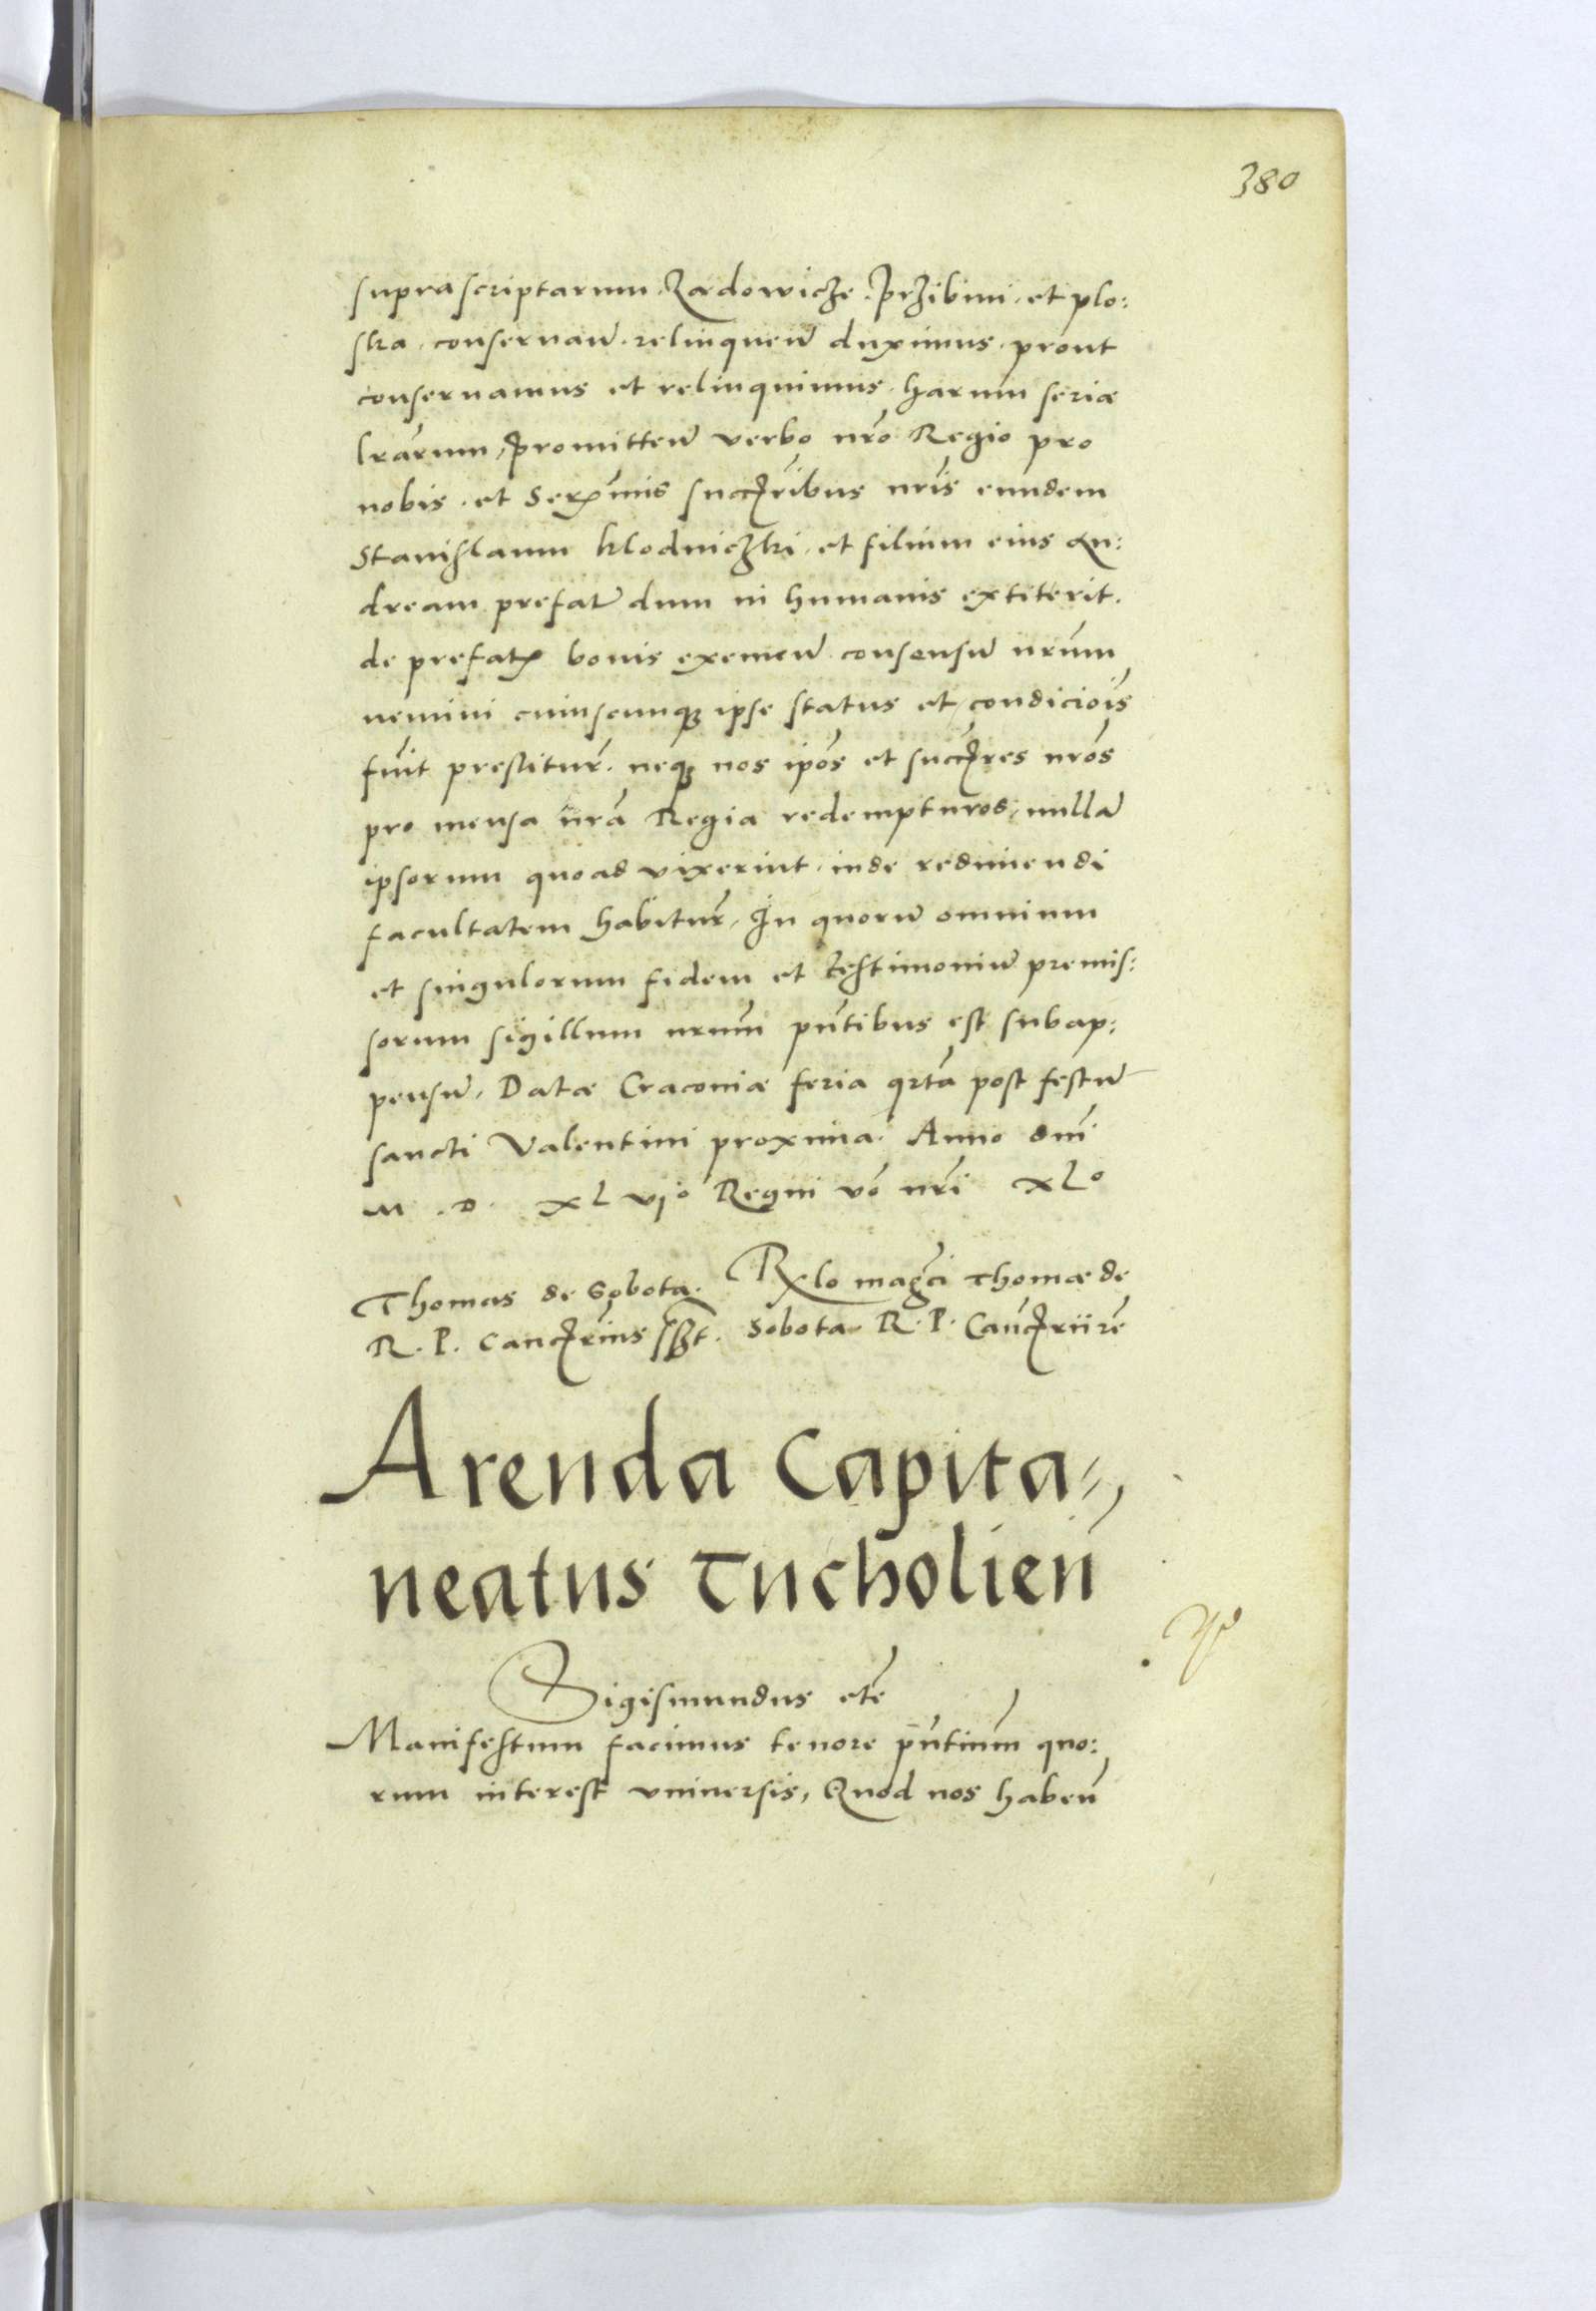 380
supra scriptarum Radowicze Przibini et plo:
ska conservan̄ relinquen̄ duximus prout
conservamus et relinquimus harum seriæ
lrārum, promitten̄ verbo nrō Regio pro
nobis et Sermis succribus nrīs eundem
Stanislaum Klodniczki et filium eius An:
dream prefat dum in humanis extiterit.
de prefat bonis exemen̄ consensū nrūm
nemini cuiuscunq ipse status et condiciōis
fuīt prestitur̄. neq nos ipōs et succres nrōs
pro mensa nrā Regia redempturos, nullā
ipsorum quoad vixerint inde redimendi
facultatem habitur̄, In quorū omnium
et singulorum fidem et testimoniū premis:
sorum sigillum nrūm pn̄tibus est subap:
pensū, Datæ Cracoviæ feria qrtā post festū
sancti Valentini proxima. Anno dnī
M. D. XL vjo Regni vō nrī XLo
Thomas de Sobota. Rlo magci Thomæ de
R. P. Cancrius sst. Sobota R. P. Cancrii re
Arenda Capita=
neatus Tucholien̄
Sigismundus etē
Manifestum facimus tenore pn̄tium quo:
rum interest universis, Quod nos haben̄